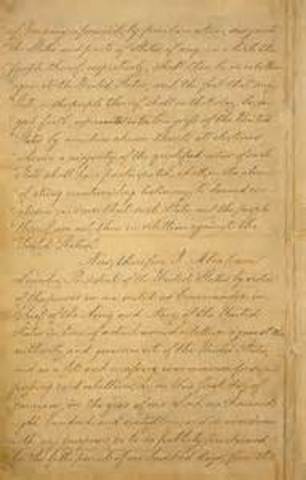 of January aforesaid, by proclamation, designate
the States and parts of States, if any, in which the
people thereof, respectively, shall then be in rebellion
against the United States; and the fact that any
State, or the people thereof, shall on that day be, in
good faith, represented in the Congress of the United
States by members chosen thereto at elections
wherein a majority of the qualified voters of such
State shall have participated, shall, in the absence
of strong countervailing testimony, be deemed con-
clusive evidence that such State, and the people
thereof, are not then in rebellion against the
United States."
Now, therefore I, Abraham
Lincoln, President of the United States, by virtue
of the power in me vested as Commander-in-
Chief, of the Army and Navy of the United
States in time of actual armed rebellion against the
authority and government of the United States,
and as a fit and necessary war measure for sup-
pressing said rebellion, do, on this first day of
January, in the year of our Lord one thousand
eight hundred and sixty three, and in accordance
with my purpose so to do publicly proclaimed
for the full period of one hundred days, from the